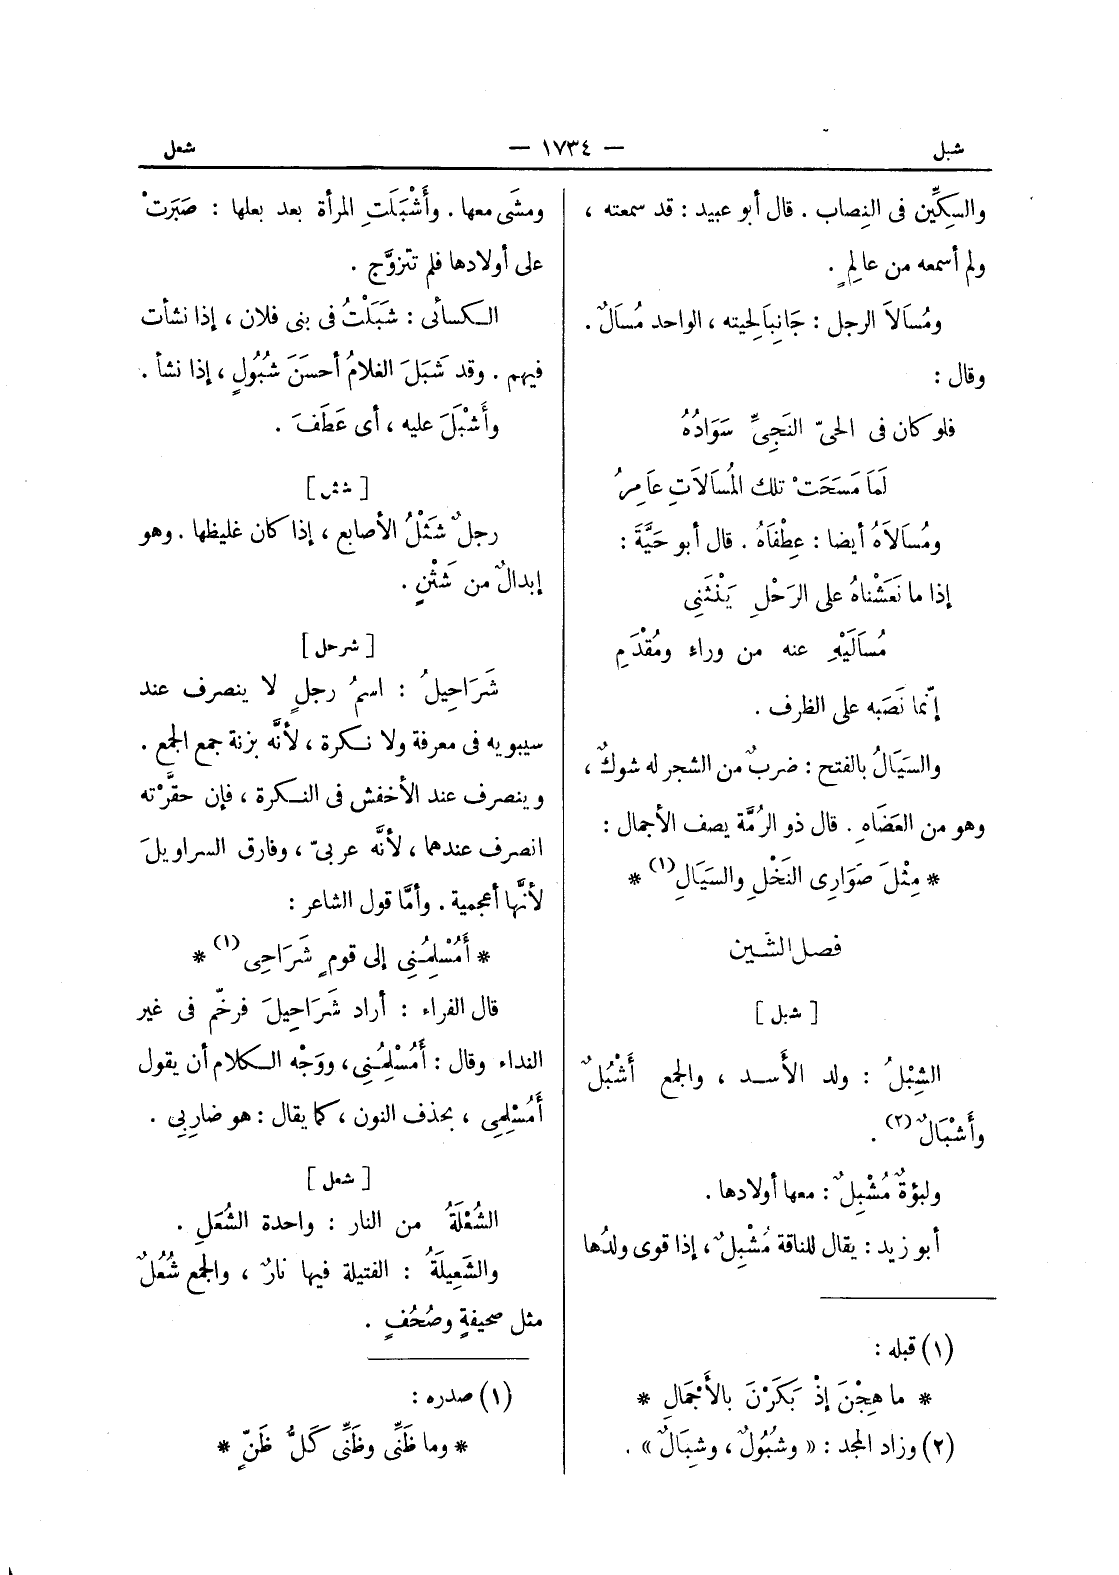 شبل — ١٧٣٤ — شعل
والسكِّين فى النِصاب . قال أبو عبيد : قد سمعته ،
ولم أسمعه من عالِمٍ .
ومُسَالاَ الرجل : جَانِبَا لحيته ، الواحد مُسَالٌ .
وقال :
فلو كان فى الحىّ النَجِىِّ سَوَادُهُ
لَمَا مَسَحَتْ تلك المُسَالاَتِ عَامِرُ
ومُسَالاَهُ أيضا : عِطْفَاهُ . قال أبو حَيَّةَ :
إذا ما نَعَشْناهُ على الرَحْلِ يَنْثَنِى
مُسَالَيْهِ عنه من وراءِ ومُقْدَمِ
إنّما نَصَبه على الظرف .
والسَيَالُ بالفتح : ضربٌ من الشجر له شوكٌ ،
وهو من العَضَاهِ . قال ذو الرُمَّة يصف الأجمال :
* مِثْلَ صَوَارِى النَخْلِ والسَيَالِ (١) *
فصل الشّين
[ شبل ]
الشِبْلُ : ولد الأسد ، والجمع أَشْبُلٌ
وأَشْبَالٌ (٢) .
ولبؤةٌ مُشْبِلٌ : معها أولادها .
أبو زيد : يقال للناقة مُشْبِلٌ ، إذا قوى ولدُها
(١) قبله :
* ما هِجْنَ إذْ بَكَرْنَ بالأَجْمَالِ *
(٢) وزاد المجد : « وشُبُولٌ ، وشِبَالٌ » .
ومشَى معها . وأَشْبَلَتِ المرأة بعد بعلها : صَبَرَتْ
على أولادها فلم تتزوَّج .
الكسائى : شَبَلْتُ فى بنى فلان ، إذا نشأت
فيهم . وقد شَبَلَ الغلامُ أحسَنَ شُبُولٍ ، إذا نشأ .
وأَشْبَلَ عليه ، أى عَطَفَ .
[ شثل ]
رجلٌ شَثْلُ الأصابع ، إذا كان غليظها . وهو
إبدالٌ من شَثْنٍ .
[ شرحل ]
شَرَاحِيلُ : اسمُ رجلٍ لا ينصرف عند
سيبويه فى معرفة ولا نكرة ، لأنَّه بزنة جمع الجمع .
وينصرف عند الأخفش فى النكرة ، فإن حقَّرْته
انصرف عندهما ، لأنَّه عربىّ ، وفارق السراويلَ
لأنَّها أعجمية . وأمَّا قول الشاعر :
* أَمُسْلِمُنِى إلى قومٍ شَرَاحِى (١) *
قال الفراء : أراد شَرَاحِيلَ فرخّم فى غير
النداء وقال : أَمُسْلِمُنِى ، ووَجْه الكلام أن يقول
أَمُسْلِمِى ، بحذف النون ، كما يقال : هو ضارِبِى .
[ شعل ]
الشُعْلَةُ من النار : واحدة الشُعَلِ .
والشَعِيلَةُ : الفتيلة فيها نارٌ ، والجمع شُعُلٌ
مثل صحيفةٍ وصُحُفٍ .
(١) صدره :
* وما ظَنِّى وظَنِّى كَلُّ ظَنّ *